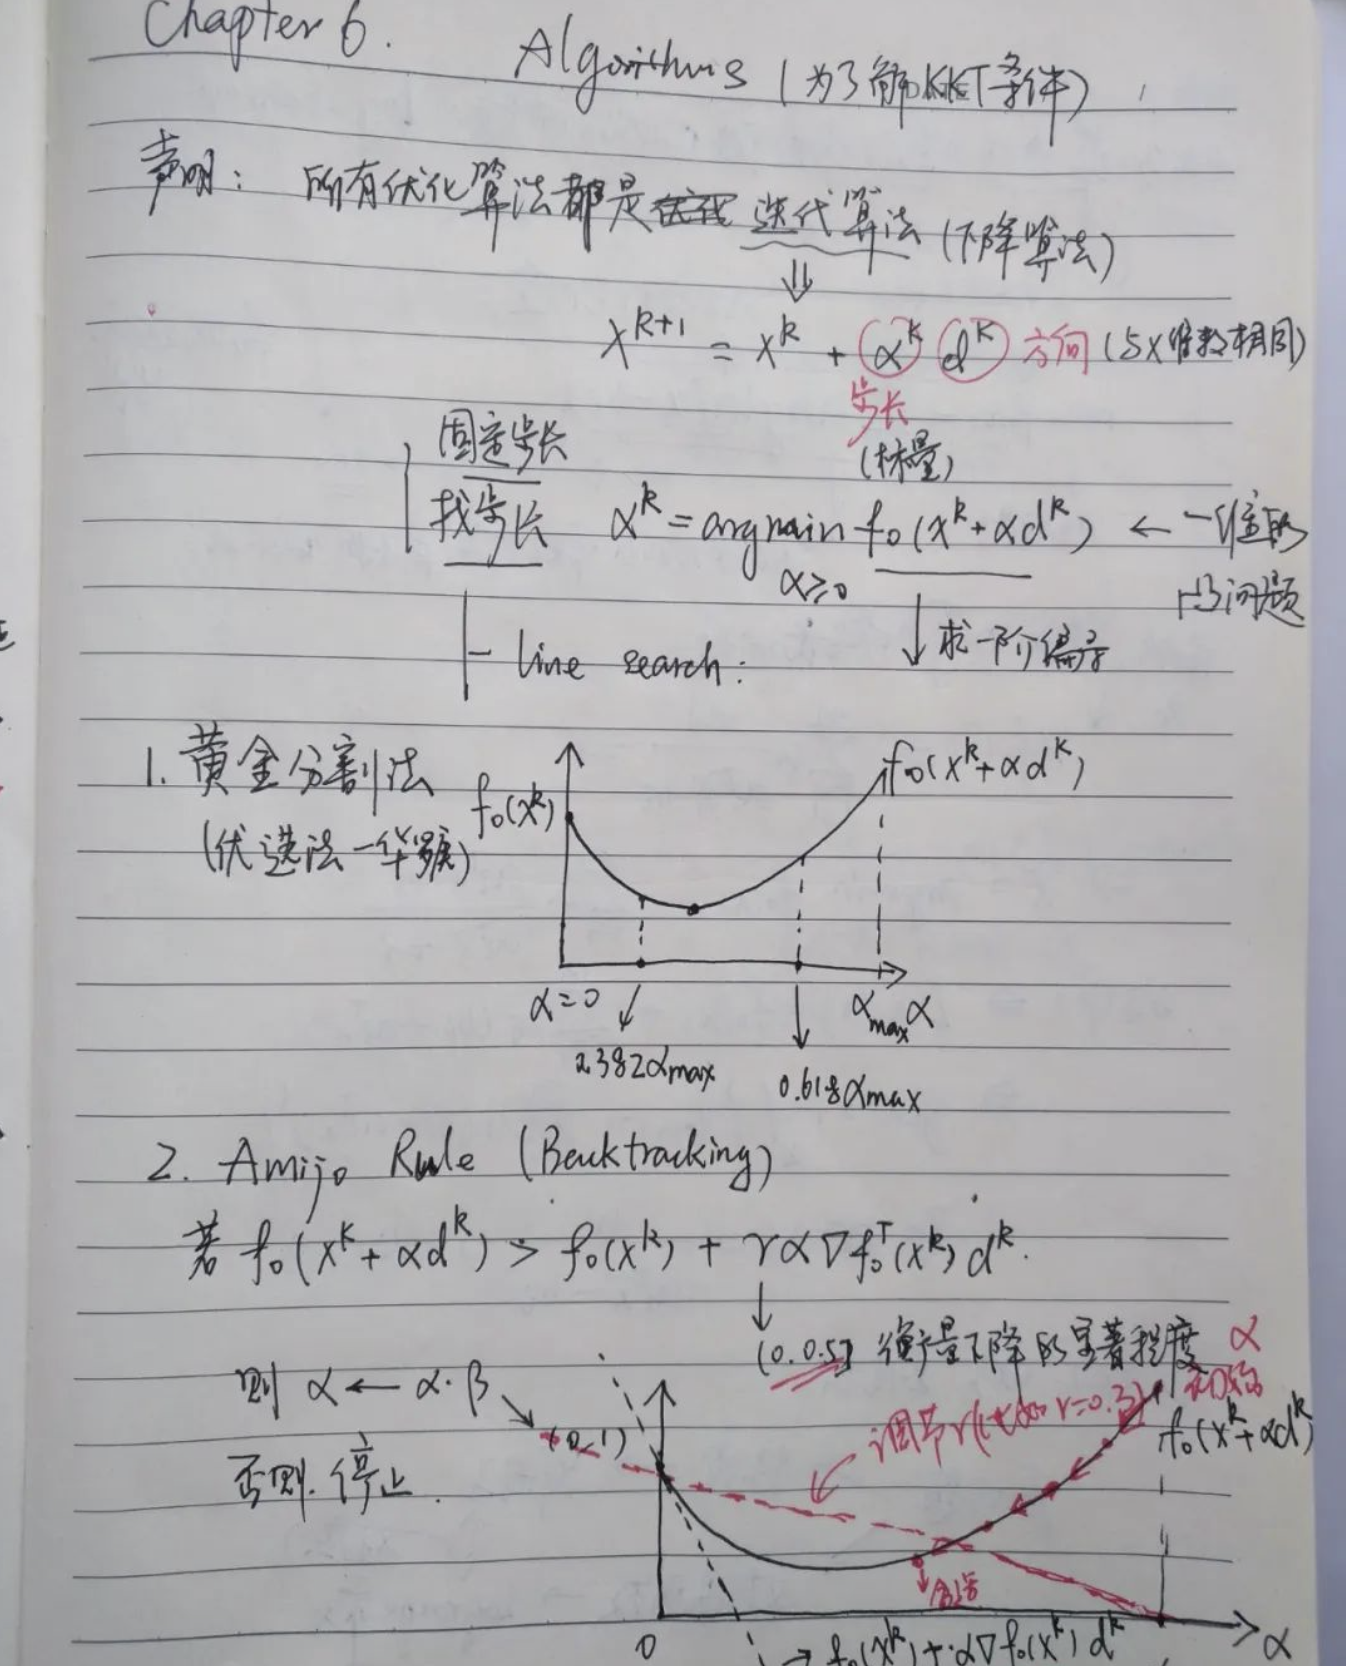 Chapter 6.
Algorithms (为了解KKT条件)
声明: 所有优化算法都是 迭代算法 (下降算法)
⇓
x^{k+1} = x^k + α^k d^k 方向 (与x维数相同)
步长
(标量)
固定步长
找步长 α^k = argmin f₀(x^k + αd^k) ← 一维的
α≥0 凸问题
↓ 求一阶偏导
- line search:
1. 黄金分割法
(优选法—华罗庚)
f₀(x^k)
f₀(x^k + αd^k)
α=0 α_max α
0.382α_max 0.618α_max
2. Amijo Rule (Backtracking)
若 f₀(x^k + αd^k) > f₀(x^k) + γα∇f₀ᵀ(x^k) d^k.
↓
(0.0.5] 衡量下降的显著程度
则 α ← α·β
(0,1)
否则. 停止.
调节γ( γ=0.3)
α
初始
f₀(x^k + αd^k)
0 α
→ f₀(x^k) + α∇f₀(x^k) d^k